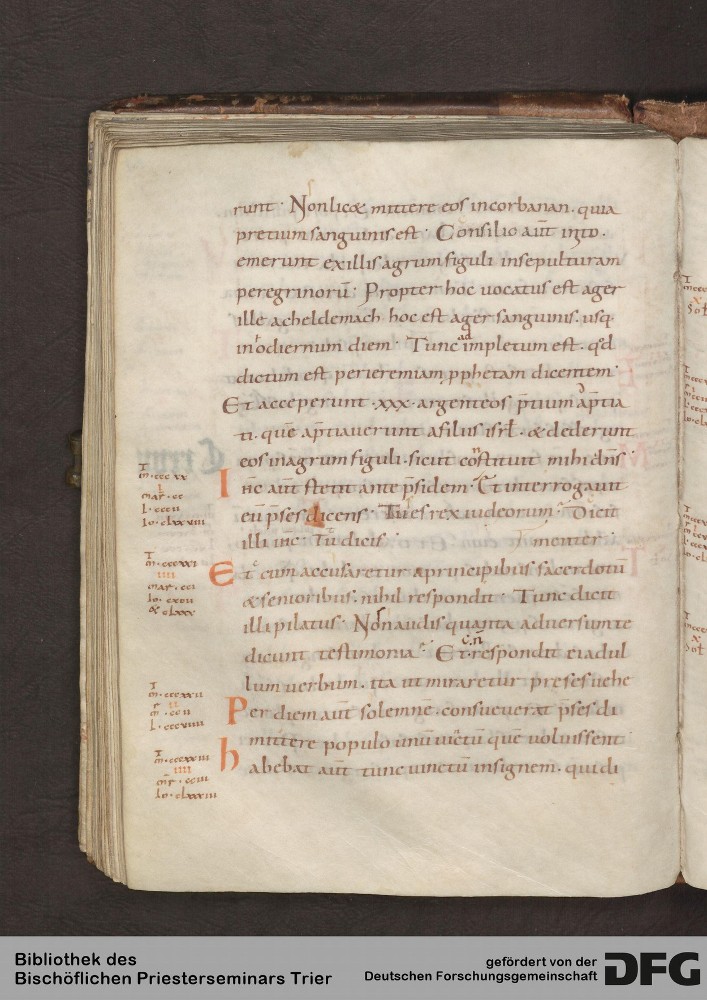 runt · Non lic& mittere eos incorbanan · quia
pretium sanguinis est · Consilio aut̄ inito ·
emerunt exillis agrum figuli insepulturam
peregrinorū · Propter hoc uocatus est ager
ille acheldemach hoc est ager sanguinis · usq
inhodiernum diem · Tunc adimpletum est · qđ
dictum est perieremiam pphetam dicentem
Et acceperunt · xxx · argenteos p̄tium ap̄tia
ti · quē ap̄tiauerunt afiliis isrł · & dederunt
eos inagrum figuli · sicut constituit mihi dn̄s
I hc̄ aut̄ stetit ante p̄sidem · Et interrogauit
eū p̄ses dicens · Tu es rex iudeorum · Dicit
illi ihc · Tu dicis menter
Et cum accusaretur aprincipibus sacerdotū
&senioribus · nihil respondit · Tunc dicit
illi pilatus · Non audis quanta aduersumte
dicunt testimonia · Et non respondit ei adul
lum uerbum · ita ut miraretur preses uehe
Per diem aut̄ solemnē · consueuerat p̄ses di
mittere populo unū uictū quē uoluissent
habebat aut̄ tunc uinctū insignem · qui di
m · ccc xx
i
mar · cc
l · ccc ii
io · clxxviii
m · cccxxi
iiii
mar · cci
&  clxxx
m · cccxxii
ii
m · cc ii
l · cccviiii
m · cccxxiii
iiii
mr · cc iii
io · clxxxiii
Bibliothek des
Bischöflichen Priesterseminars Trier
gefördert von der
Deutschen Forschungsgemeinschaft DFG